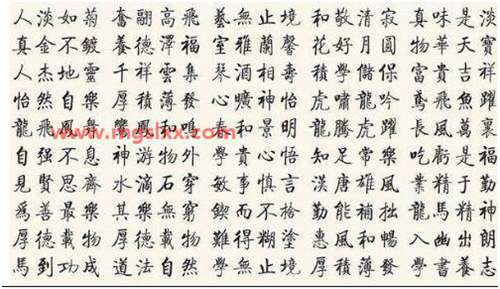 人淡如菊 奮翮高飛 藝無止境 和敬清寂 真味是淡
真金不鍍 養德澤福 室雅蘭馨 花好月圓 物華天寶
人杰地靈 千祥雲集 琴酒相壽 學儲保 富貴吉祥
怡然自樂 厚積薄發 心曠神怡 虎嘯龍吟 鳶飛魚躍
龍飛鳳舞 和景明 龍騰虎躍 長風萬裏
www.mgslxx.com
自强不息 神游物外 學貴心悟 知足常樂 吃虧是福
見賢思齊 水滴石穿 敏事慎言 漢唐雄風 業精于勤
爲善最樂 其樂無窮 鍥而不捨 勤能補拙 龍馬精神
厚德載物 厚德載物 難得糊塗 惠風和暢 入幽出朗
馬到功成 道法自然 學無止境 厚積薄發 學書養志